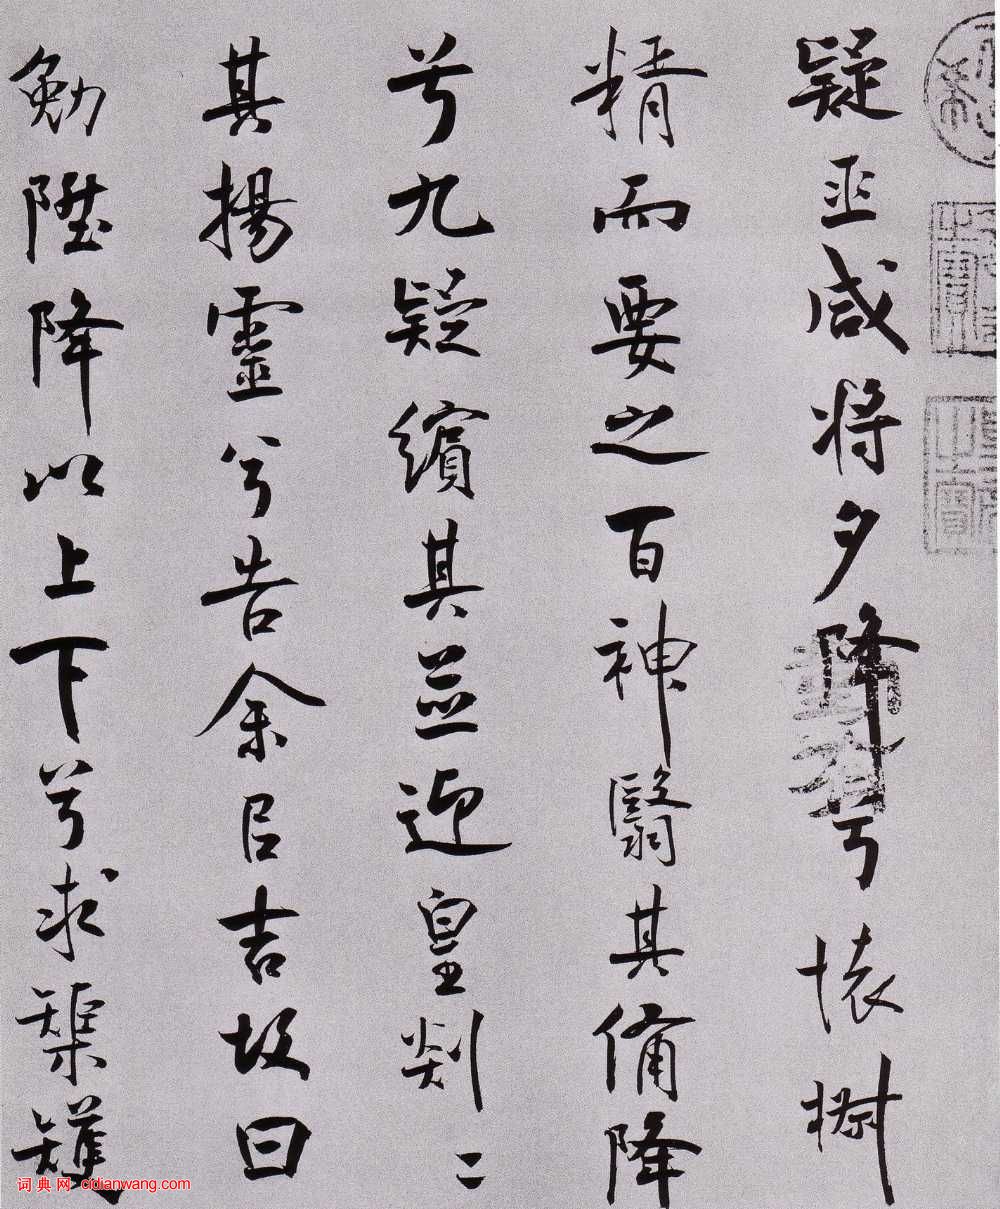 疑巫咸将夕降兮懷椒
精而要之百神翳其備降
兮九疑繽其並迎皇剡二
其揚靈兮告余㠯吉故曰
勉陞降以上下兮求榘矱
词典网 cidianwang.com